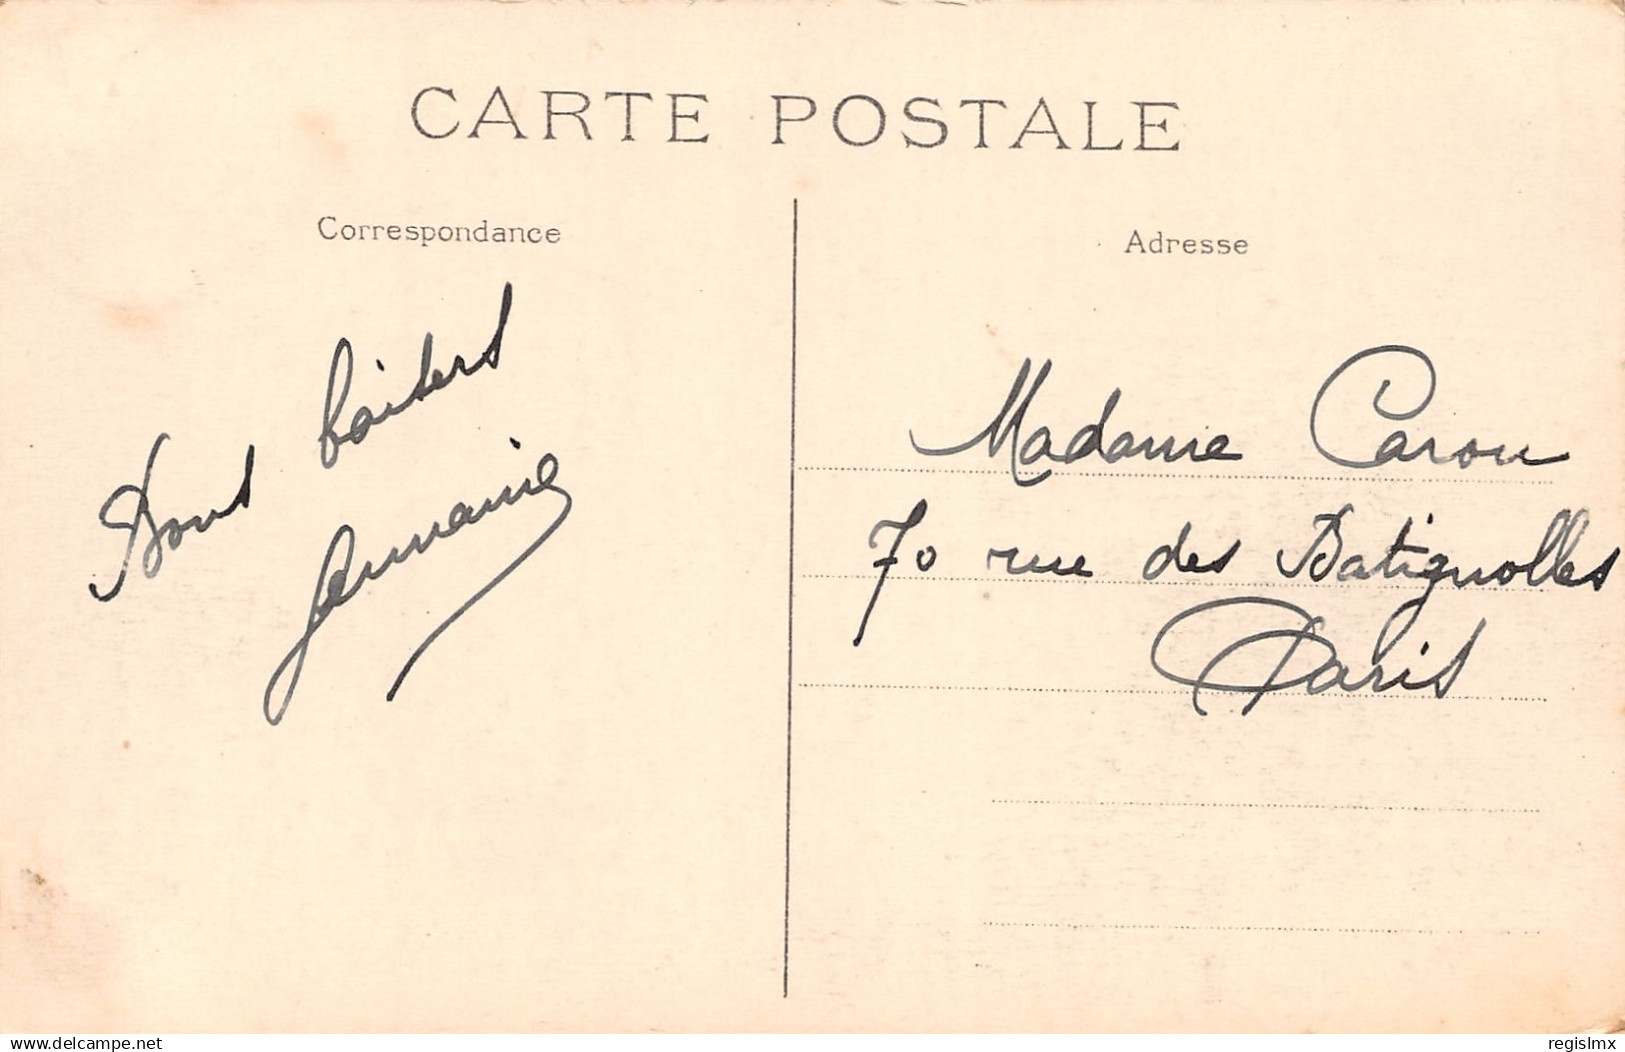 CARTE POSTALE
Correspondance
Bons baisers
Germaine
Adresse
Madame Caron
70 rue des Batignolles
Paris
www.delcampe.net
regislmx